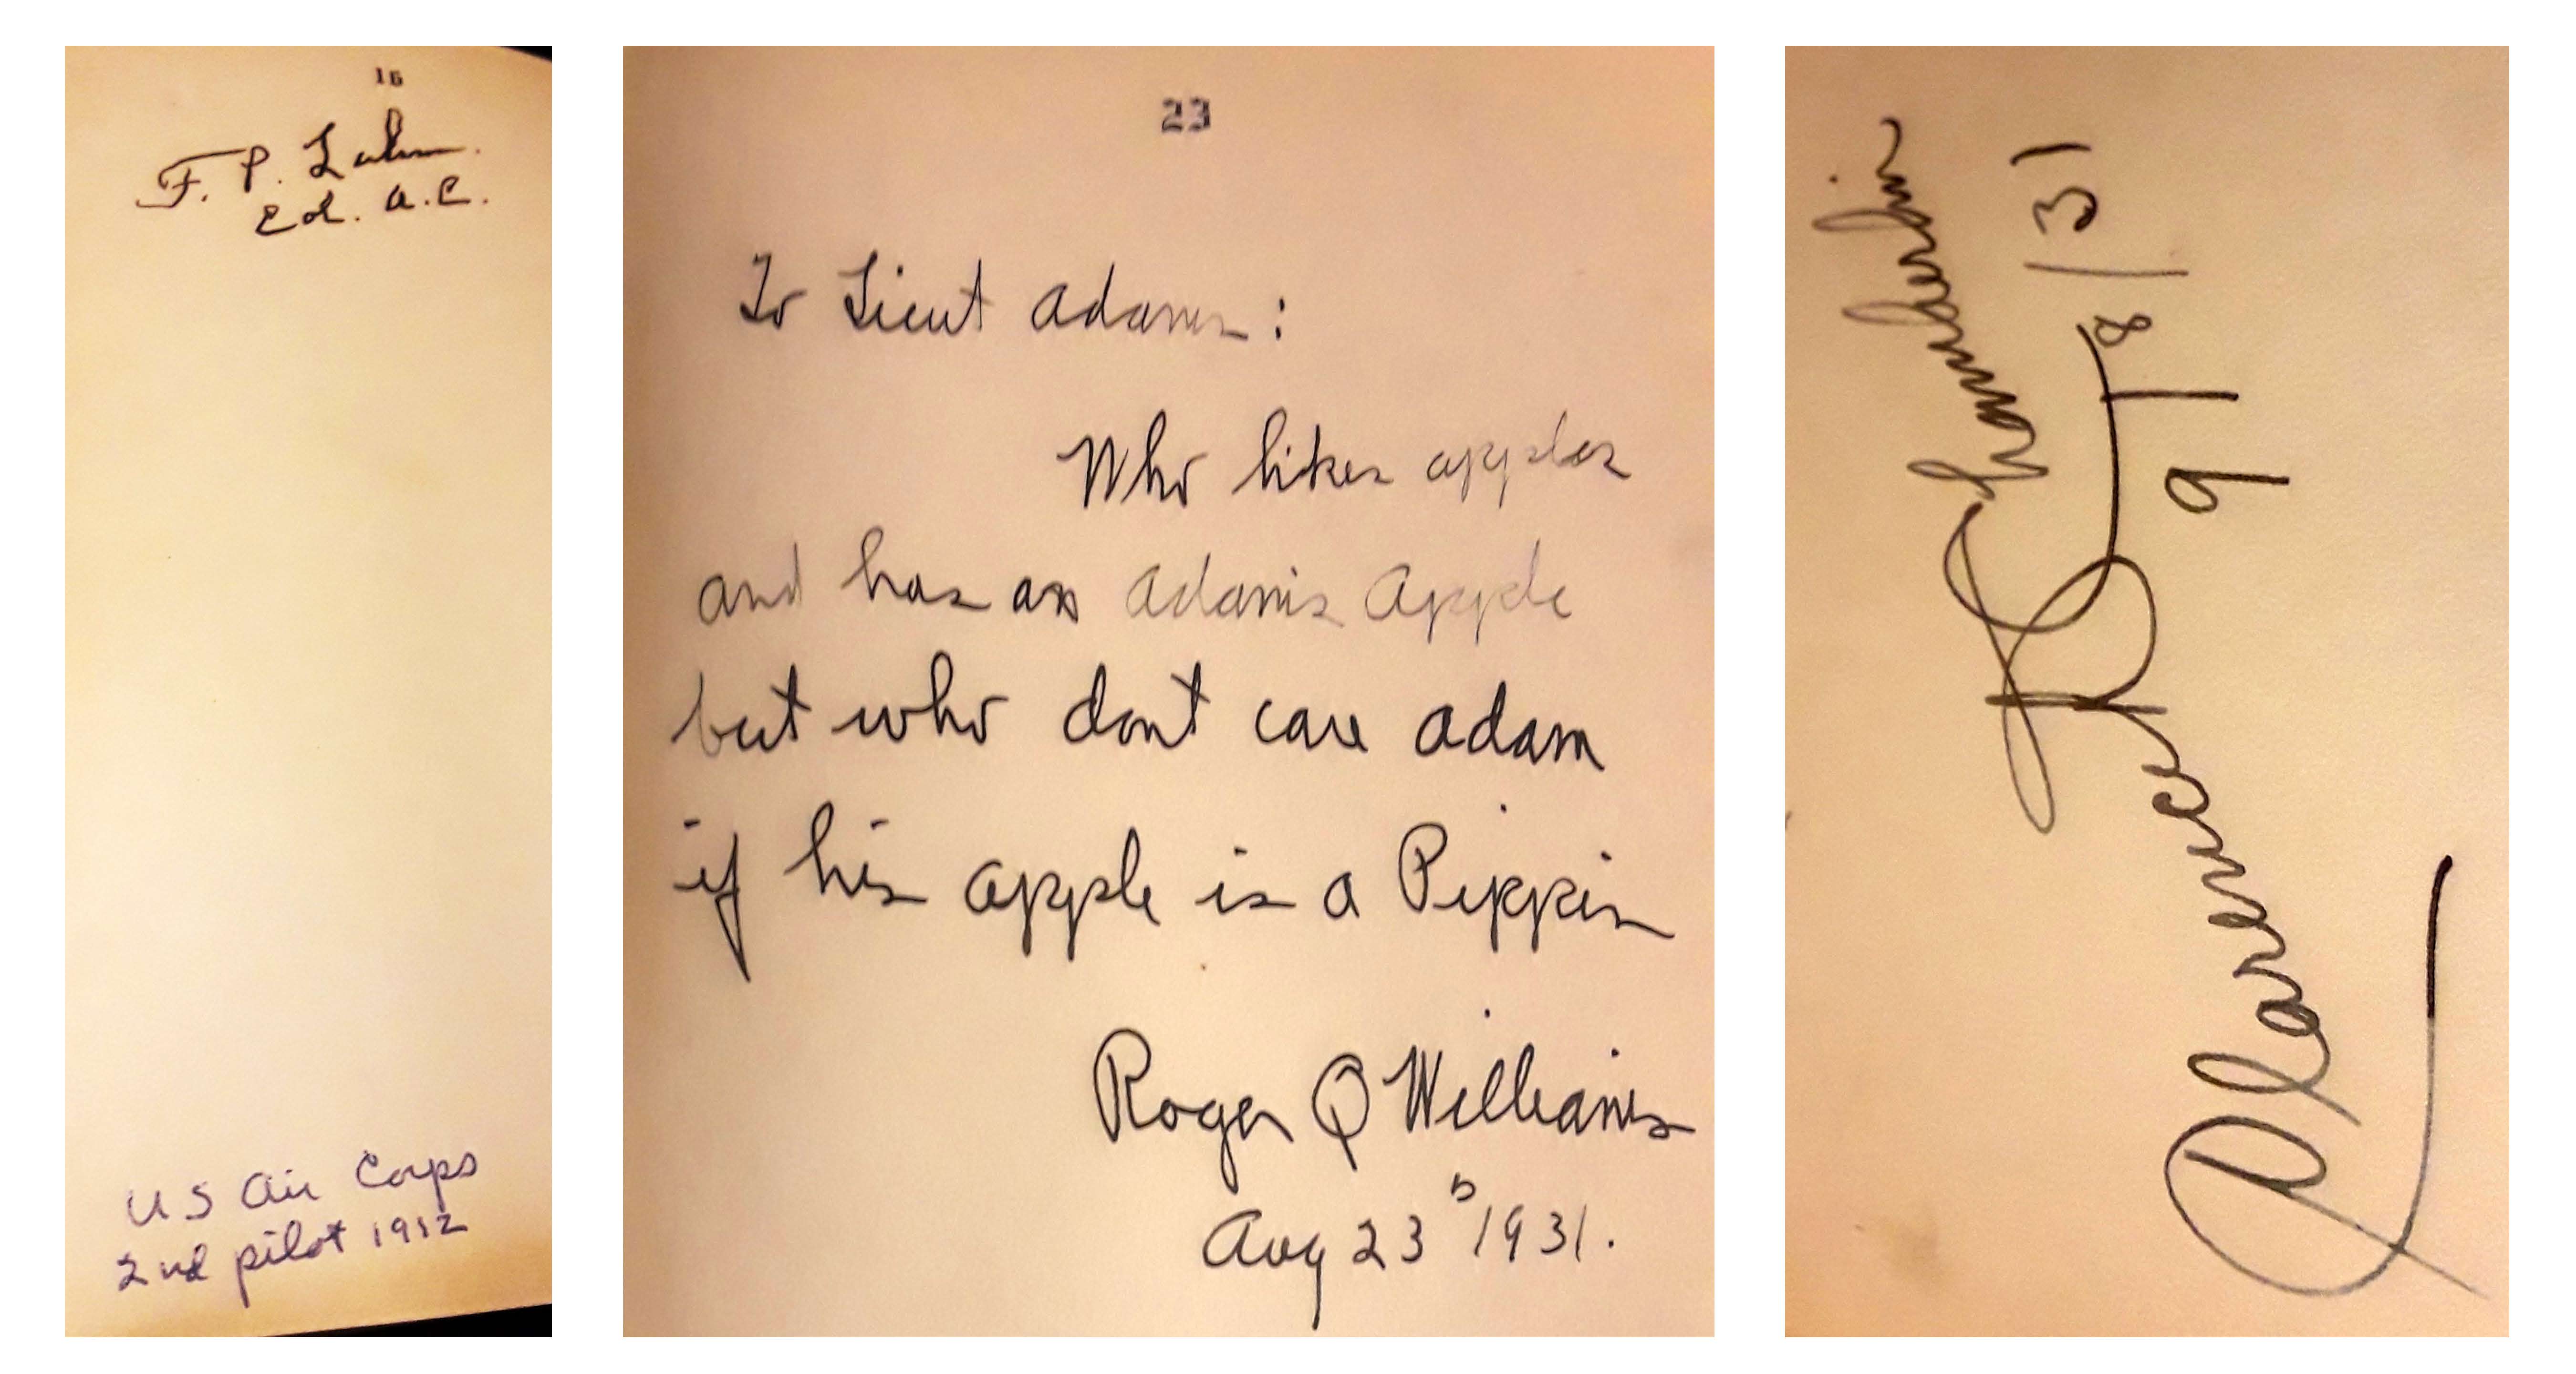 16
F. P. Lahm.
Col. A.C.
US Air Corps
2nd pilot 1912
23
To Lieut Adams:
Who likes apples
and has an Adams Apple
but who dont care adam
if his apple is a Pippin
Roger Q Williams
Aug 23 1931.
Clarence D
Chamberlin
9/18/31